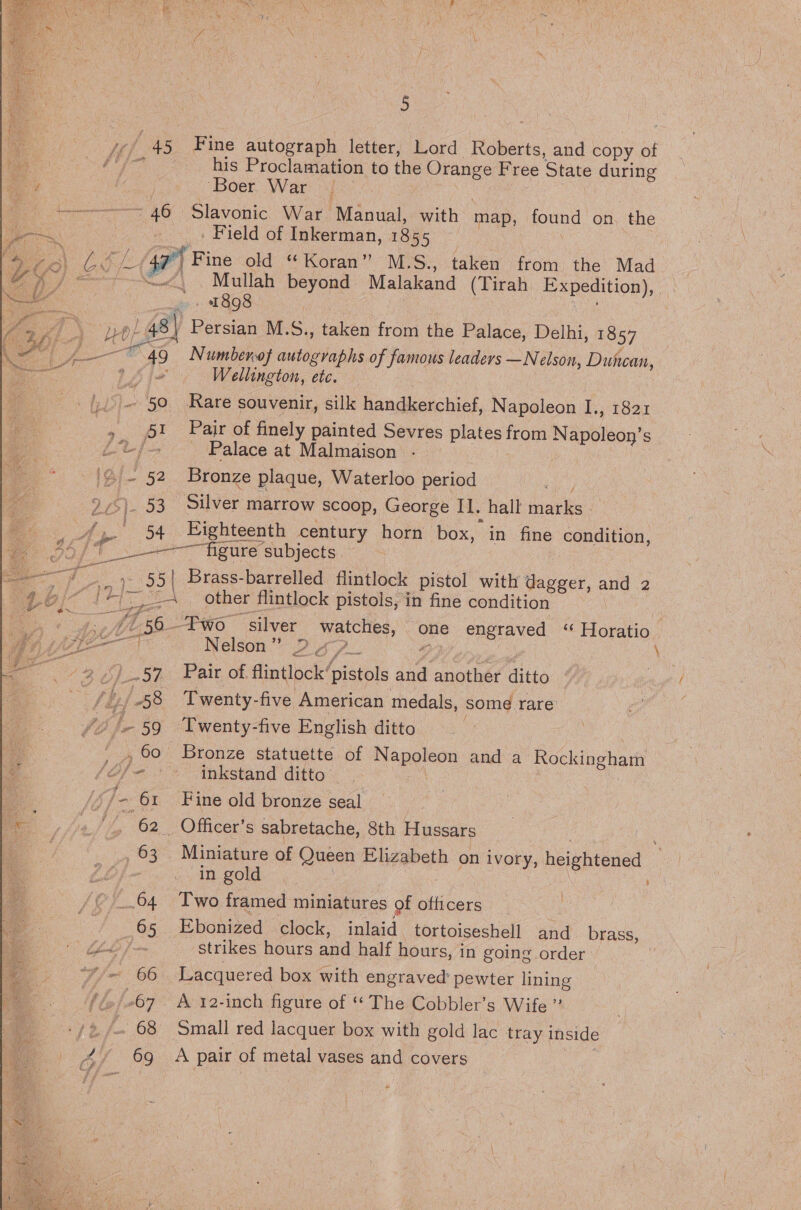 5
45 Fine autograph letter, Lord Roberts, and copy of
his Proclamation to the Orange Free State during
Boer War
46 Slavonic War Manual, with map, found on the
Field of Inkerman, 1855
47 Fine old “Koran” M.S., taken from the Mad
Mullah beyond Malakand (Tirah Expedition),
1898
48 Persian M.S., taken from the Palace, Delhi, 1857
49 Number of autographs of famous leaders—Nelson, Duncan,
Wellington, etc.
50 Rare souvenir, silk handkerchief, Napoleon I., 1821
51 Pair of finely painted Sevres plates from Napoleon's
Palace at Malmaison
52 Bronze plaque, Waterloo period
53 Silver marrow scoop, George II. hall marks
54 Eighteenth century horn box, in fine condition,
figure subjects
55 Brass-barrelled flintlock pistol with dagger, and 2
other flintlock pistols, in fine condition
56 Two silver watches, one engraved “Horatio
Nelson”
57 Pair of flintlock pistols and another ditto
58 Twenty-five American medals, some rare
59 Twenty-five English ditto
60 Bronze statuette of Napoleon and a Rockingham
inkstand ditto
61 Fine old bronze seal
62 Officer's sabretache, 8th Hussars
63 Miniature of Queen Elizabeth on ivory, heightened
in gold
64 Two framed miniatures of officers
65 Ebonized clock, inlaid tortoiseshell and brass,
strikes hours and half hours, in going order
66 Lacquered box with engraved pewter lining
67 A 12-inch figure of “The Cobbler's Wife”
68 Small red lacquer box with gold lac tray inside
69 A pair of metal vases and covers